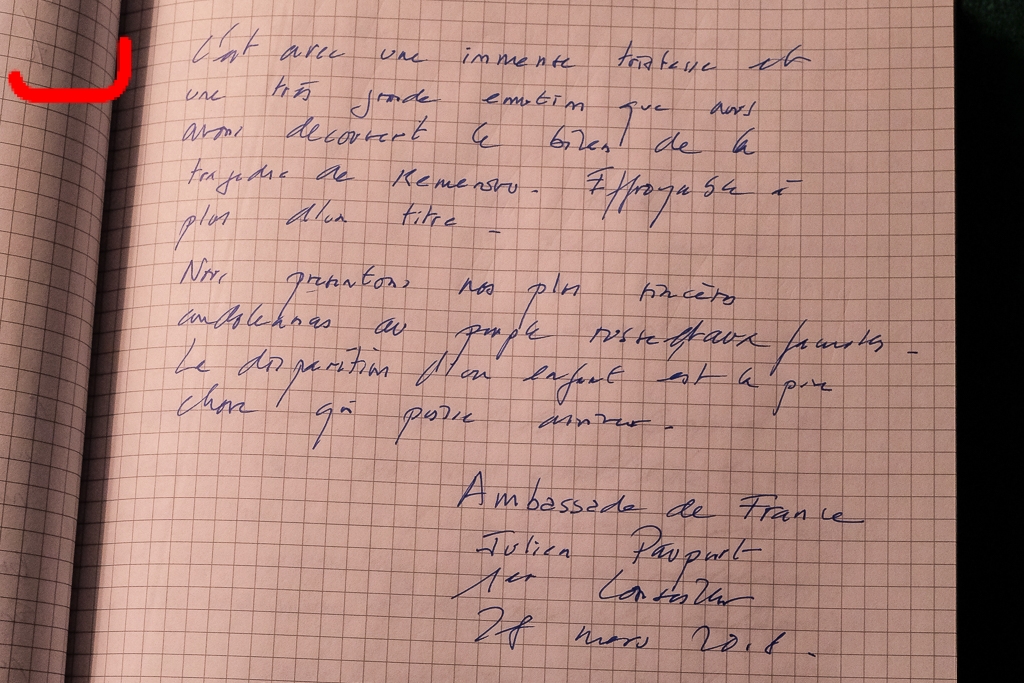 C'est avec une immense tristesse et
une très grande emotion que nous
avons decouvert le bilan de la
tragedie de Kemerovo. Effroyable à
plus d'un titre.
Nous présentons nos plus sincères
condoleances au peuple russe et aux familles.
La disparition d'un enfant est la pire
chose qui puisse arriver.
Ambassade de France
Julien
1er Conseiller
28 mars 2018.